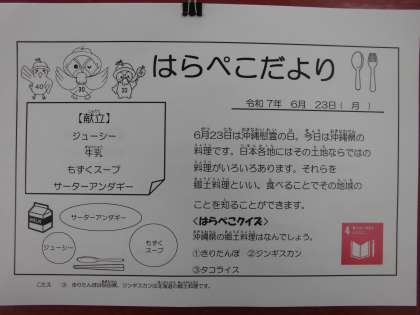 はらぺこだより
令和 7年 6月 23日( 月 )
【献立】
ジューシー
牛乳
もずくスープ
サーターアンダギー
6月23日は沖縄慰霊の日。今日は沖縄県の
料理です。日本各地にはその土地ならではの
料理がいろいろあります。それらを
郷土料理といい、食べることでその地域の
ことを知ることができます。
<はらぺこクイズ>
沖縄県の郷土料理はなんでしょう。
①きりたんぽ ②ジンギスカン
③タコライス
サーターアンダギー
ジューシー
もずく
スープ
MILK
40
30
4
こたえ ③ きりたんぽは秋田県、ジンギスカンは北海道の郷土料理です。